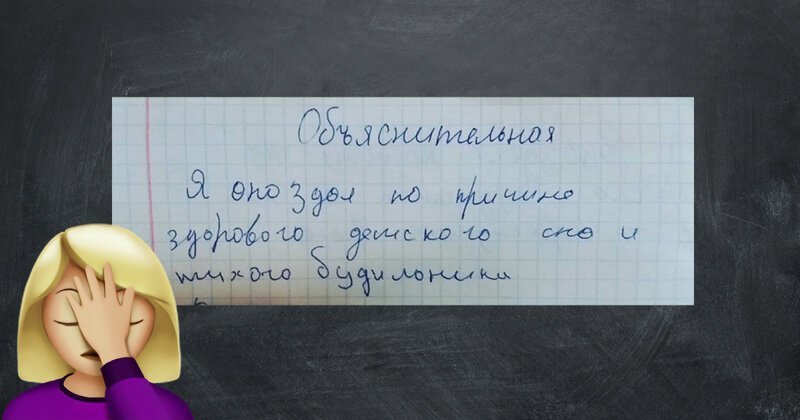 Объяснительная
Я опоздал по причине
здорового детского сна и
тихого будильника